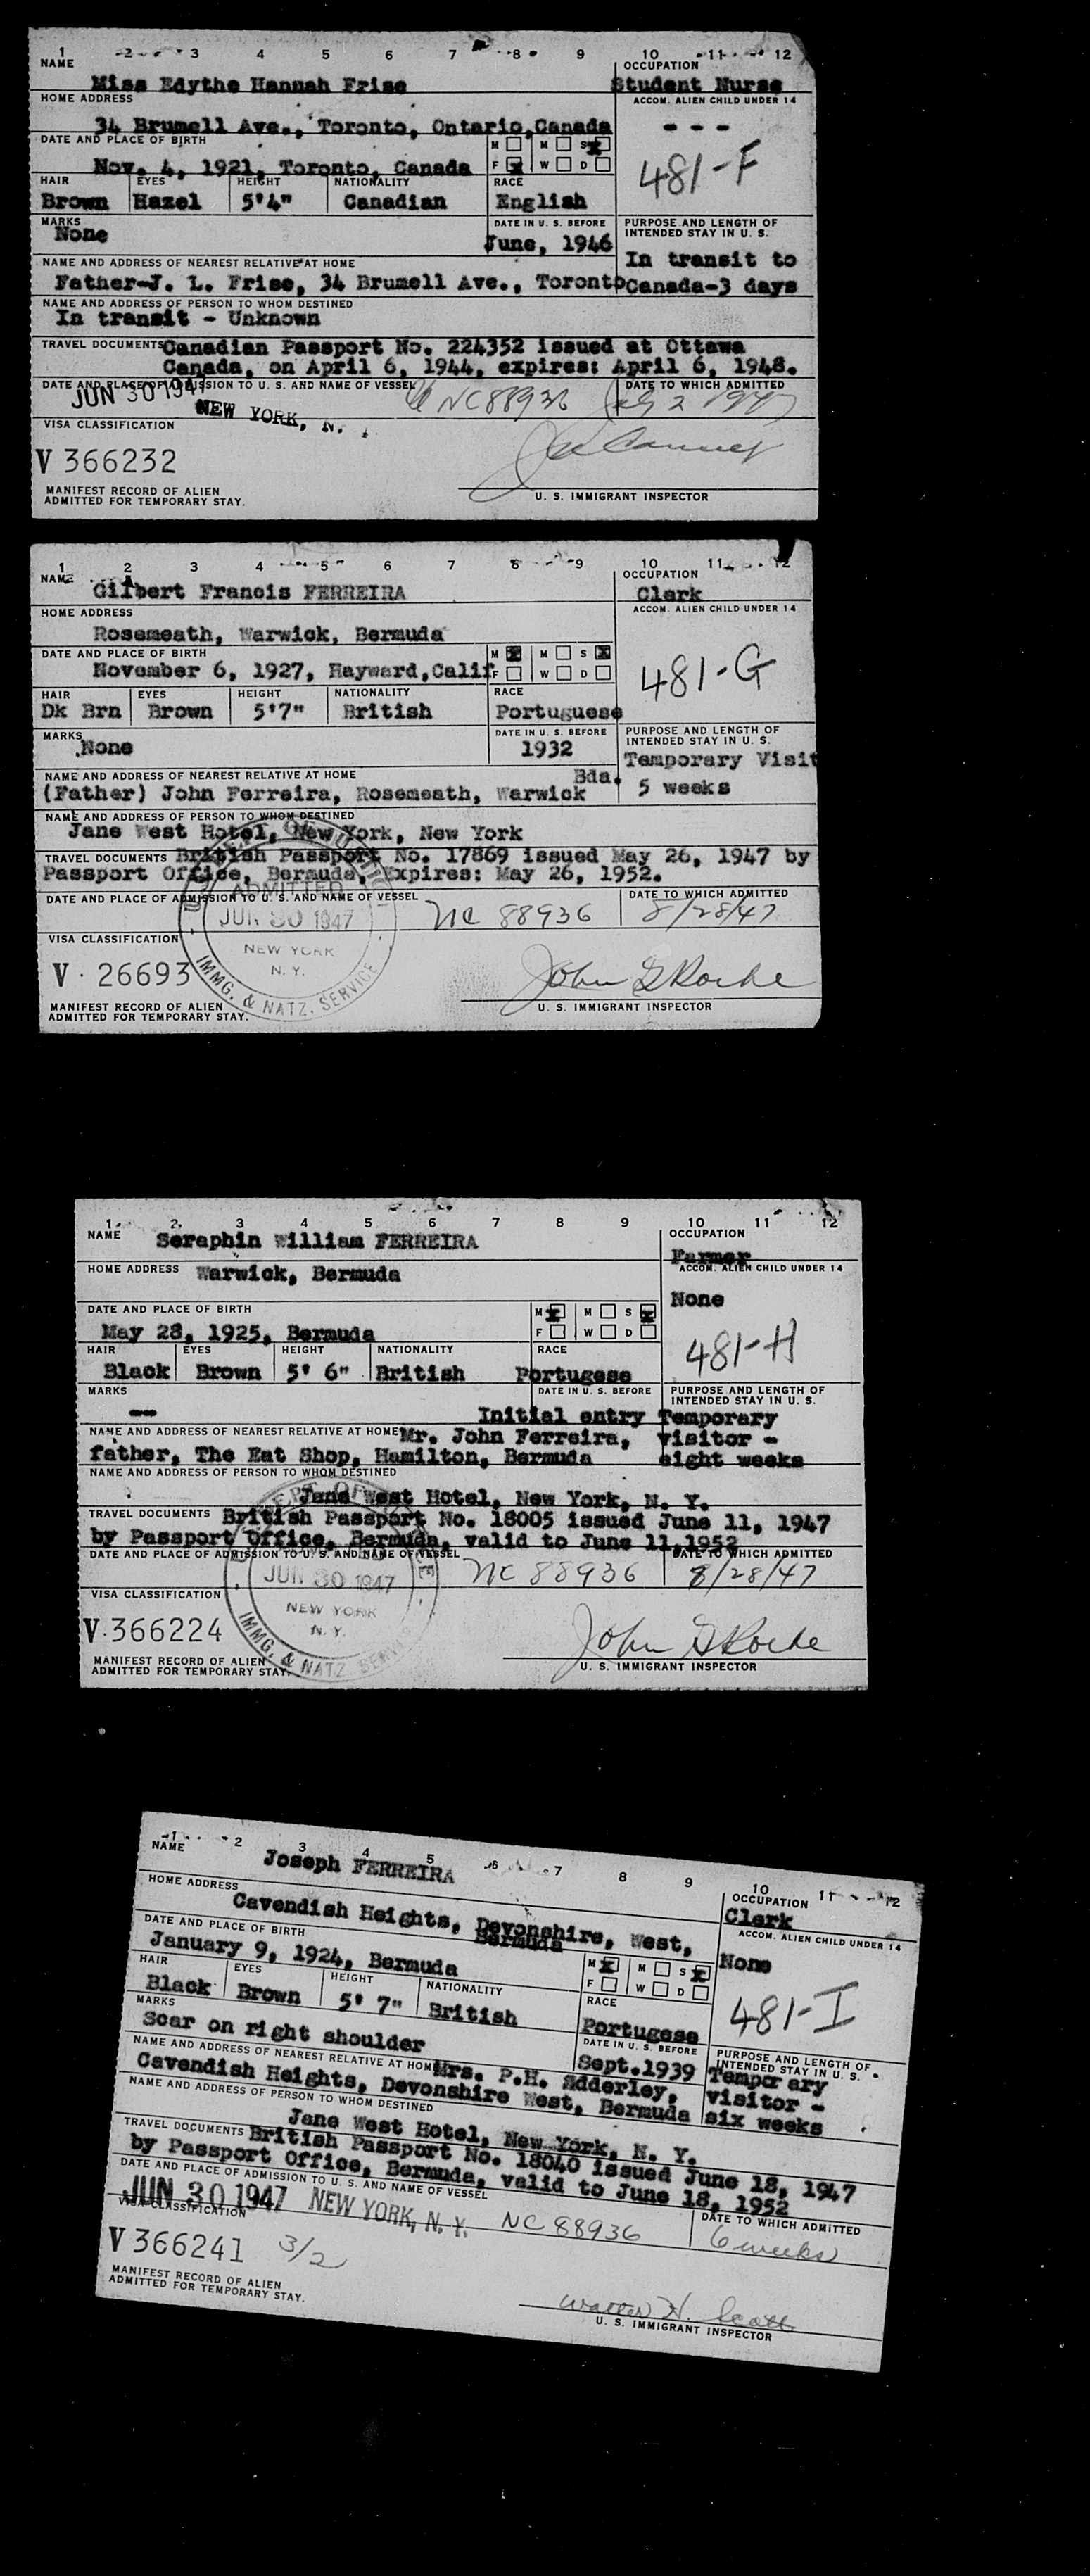 1 2 3 4 5 6 7 8 9 10 11 12
NAME OCCUPATION
Miss Edythe Hannah Frise Student Nurse
HOME ADDRESS ACCOM. ALIEN CHILD UNDER 14
34 Brumell Ave., Toronto, Ontario,Canada - - -
DATE AND PLACE OF BIRTH M M S
Nov. 4, 1921, Toronto, Canada F W D 481-F
HAIR EYES HEIGHT NATIONALITY RACE
Brown Hazel 5'4" Canadian English
MARKS DATE IN U. S. BEFORE PURPOSE AND LENGTH OF INTENDED STAY IN U. S.
None June, 1946
NAME AND ADDRESS OF NEAREST RELATIVE AT HOME In transit to
Father-J. L. Frise, 34 Brumell Ave., Toronto Canada-3 days
NAME AND ADDRESS OF PERSON TO WHOM DESTINED
In transit - Unknown
TRAVEL DOCUMENTS Canadian Passport No. 224352 issued at Ottawa
Canada, on April 6, 1944, expires: April 6, 1948.
DATE AND PLACE OF ADMISSION TO U. S. AND NAME OF VESSEL DATE TO WHICH ADMITTED
JUN 30 1947 NEW YORK, N. NC88936 July 2 1947
VISA CLASSIFICATION
V 366232
MANIFEST RECORD OF ALIEN
ADMITTED FOR TEMPORARY STAY. U. S. IMMIGRANT INSPECTOR
1 2 3 4 5 6 7 8 9 10 11 12
NAME OCCUPATION
Gilbert Francis FERREIRA Clerk
HOME ADDRESS ACCOM. ALIEN CHILD UNDER 14
Rosemeath, Warwick, Bermuda
DATE AND PLACE OF BIRTH M M S
November 6, 1927, Hayward,Calif F W D 481-G
HAIR EYES HEIGHT NATIONALITY RACE
Dk Brn Brown 5'7" British Portuguese
MARKS DATE IN U. S. BEFORE PURPOSE AND LENGTH OF INTENDED STAY IN U. S.
None 1932 Temporary Visit
NAME AND ADDRESS OF NEAREST RELATIVE AT HOME Bda.
(Father) John Ferreira, Rosemeath, Warwick 5 weeks
NAME AND ADDRESS OF PERSON TO WHOM DESTINED
Jane West Hotel, New York, New York
TRAVEL DOCUMENTS British Passport No. 17869 issued May 26, 1947 by
Passport Office, Bermuda, Expires: May 26, 1952.
DATE AND PLACE OF ADMISSION TO U. S. AND NAME OF VESSEL DATE TO WHICH ADMITTED
ADMITTED JUN 30 1947 NEW YORK N. Y. IMMG. & NATZ. SERVICE NC 88936 8/28/47
VISA CLASSIFICATION
V 26693 John G Roche
MANIFEST RECORD OF ALIEN
ADMITTED FOR TEMPORARY STAY. U. S. IMMIGRANT INSPECTOR
1 2 3 4 5 6 7 8 9 10 11 12
NAME OCCUPATION
Seraphin William FERREIRA Farmer
HOME ADDRESS Warwick, Bermuda ACCOM. ALIEN CHILD UNDER 14
None
DATE AND PLACE OF BIRTH M M S
May 28, 1925, Bermuda F W D 481-H
HAIR EYES HEIGHT NATIONALITY RACE
Black Brown 5' 6" British Portugese
MARKS DATE IN U. S. BEFORE PURPOSE AND LENGTH OF INTENDED STAY IN U. S.
-- Initial entry Temporary
NAME AND ADDRESS OF NEAREST RELATIVE AT HOME Mr. John Ferreira, visitor -
father, The Eat Shop, Hamilton, Bermuda eight weeks
NAME AND ADDRESS OF PERSON TO WHOM DESTINED
Jane West Hotel, New York, N. Y.
TRAVEL DOCUMENTS British Passport No. 18005 issued June 11, 1947
by Passport Office, Bermuda, valid to June 11,1952
DATE AND PLACE OF ADMISSION TO U. S. AND NAME OF VESSEL DATE TO WHICH ADMITTED
JUN 30 1947 NEW YORK N. Y. IMMG. & NATZ SERVICE NC 88936 8/28/47
VISA CLASSIFICATION
V 366224 John G Roche
MANIFEST RECORD OF ALIEN
ADMITTED FOR TEMPORARY STAY. U. S. IMMIGRANT INSPECTOR
1 2 3 4 5 6 7 8 9 10 11 12
NAME OCCUPATION
Joseph FERREIRA Clerk
HOME ADDRESS ACCOM. ALIEN CHILD UNDER 14
Cavendish Heights, Devonshire, West, Bermuda None
DATE AND PLACE OF BIRTH M M S
January 9, 1924, Bermuda F W D 481-I
HAIR EYES HEIGHT NATIONALITY RACE
Black Brown 5' 7" British Portugese
MARKS DATE IN U. S. BEFORE PURPOSE AND LENGTH OF INTENDED STAY IN U. S.
Scar on right shoulder Sept.1939 Temporary
NAME AND ADDRESS OF NEAREST RELATIVE AT HOME Mrs. P.H. Adderley, visitor -
Cavendish Heights, Devonshire West, Bermuda six weeks
NAME AND ADDRESS OF PERSON TO WHOM DESTINED
Jane West Hotel, New York, N. Y.
TRAVEL DOCUMENTS British Passport No. 18040 issued June 18, 1947
by Passport Office, Bermuda, valid to June 18, 1952
DATE AND PLACE OF ADMISSION TO U. S. AND NAME OF VESSEL DATE TO WHICH ADMITTED
JUN 30 1947 NEW YORK, N. Y. NC 88936 6 weeks
VISA CLASSIFICATION
V 366241 3/2
MANIFEST RECORD OF ALIEN Walter H. Scott
ADMITTED FOR TEMPORARY STAY. U. S. IMMIGRANT INSPECTOR